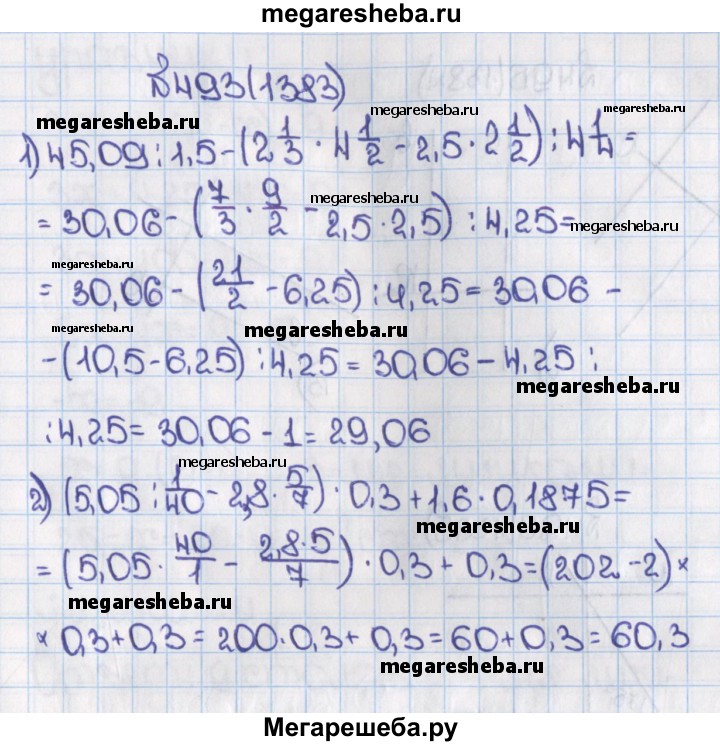 megaresheba.ru
№493(1383)
megaresheba.ru
megaresheba.ru
megaresheba.ru
1) 45,09 : 1,5 - (2 1/3 · 4 1/2 - 2,5 · 2 1/2) : 4 1/4 =
megaresheba.ru
= 30,06 - (7/3 · 9/2 - 2,5 · 2,5) : 4,25 =
megaresheba.ru
megaresheba.ru
= 30,06 - (21/2 - 6,25) : 4,25 = 30,06 -
megaresheba.ru
megaresheba.ru
- (10,5 - 6,25) : 4,25 = 30,06 - 4,25 :
megaresheba.ru
: 4,25 = 30,06 - 1 = 29,06
megaresheba.ru
2) (5,05 : 1/40 - 2,8 · 5/7) · 0,3 + 1,6 · 0,1875 =
megaresheba.ru
= (5,05 · 40/1 - 2,8·5/7) · 0,3 + 0,3 = (202 - 2) ×
megaresheba.ru
× 0,3 + 0,3 = 200 · 0,3 + 0,3 = 60 + 0,3 = 60,3
megaresheba.ru
Мегарешеба.ру